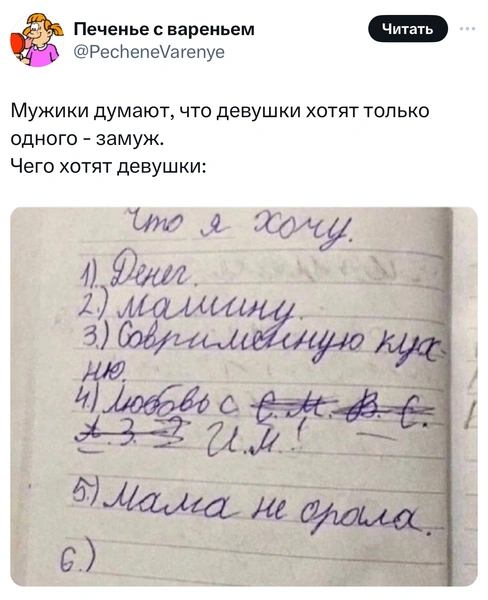 Печенье с вареньем
@PecheneVarenye
Читать
Мужики думают, что девушки хотят только
одного - замуж.
Чего хотят девушки:
Что я хочу.
1) Денег.
2) машину.
3) Совримеенную кух-
ню.
4) Любовь с С. М. В. С.
А. З. И.М.!
5) Мама не орала.
6.)